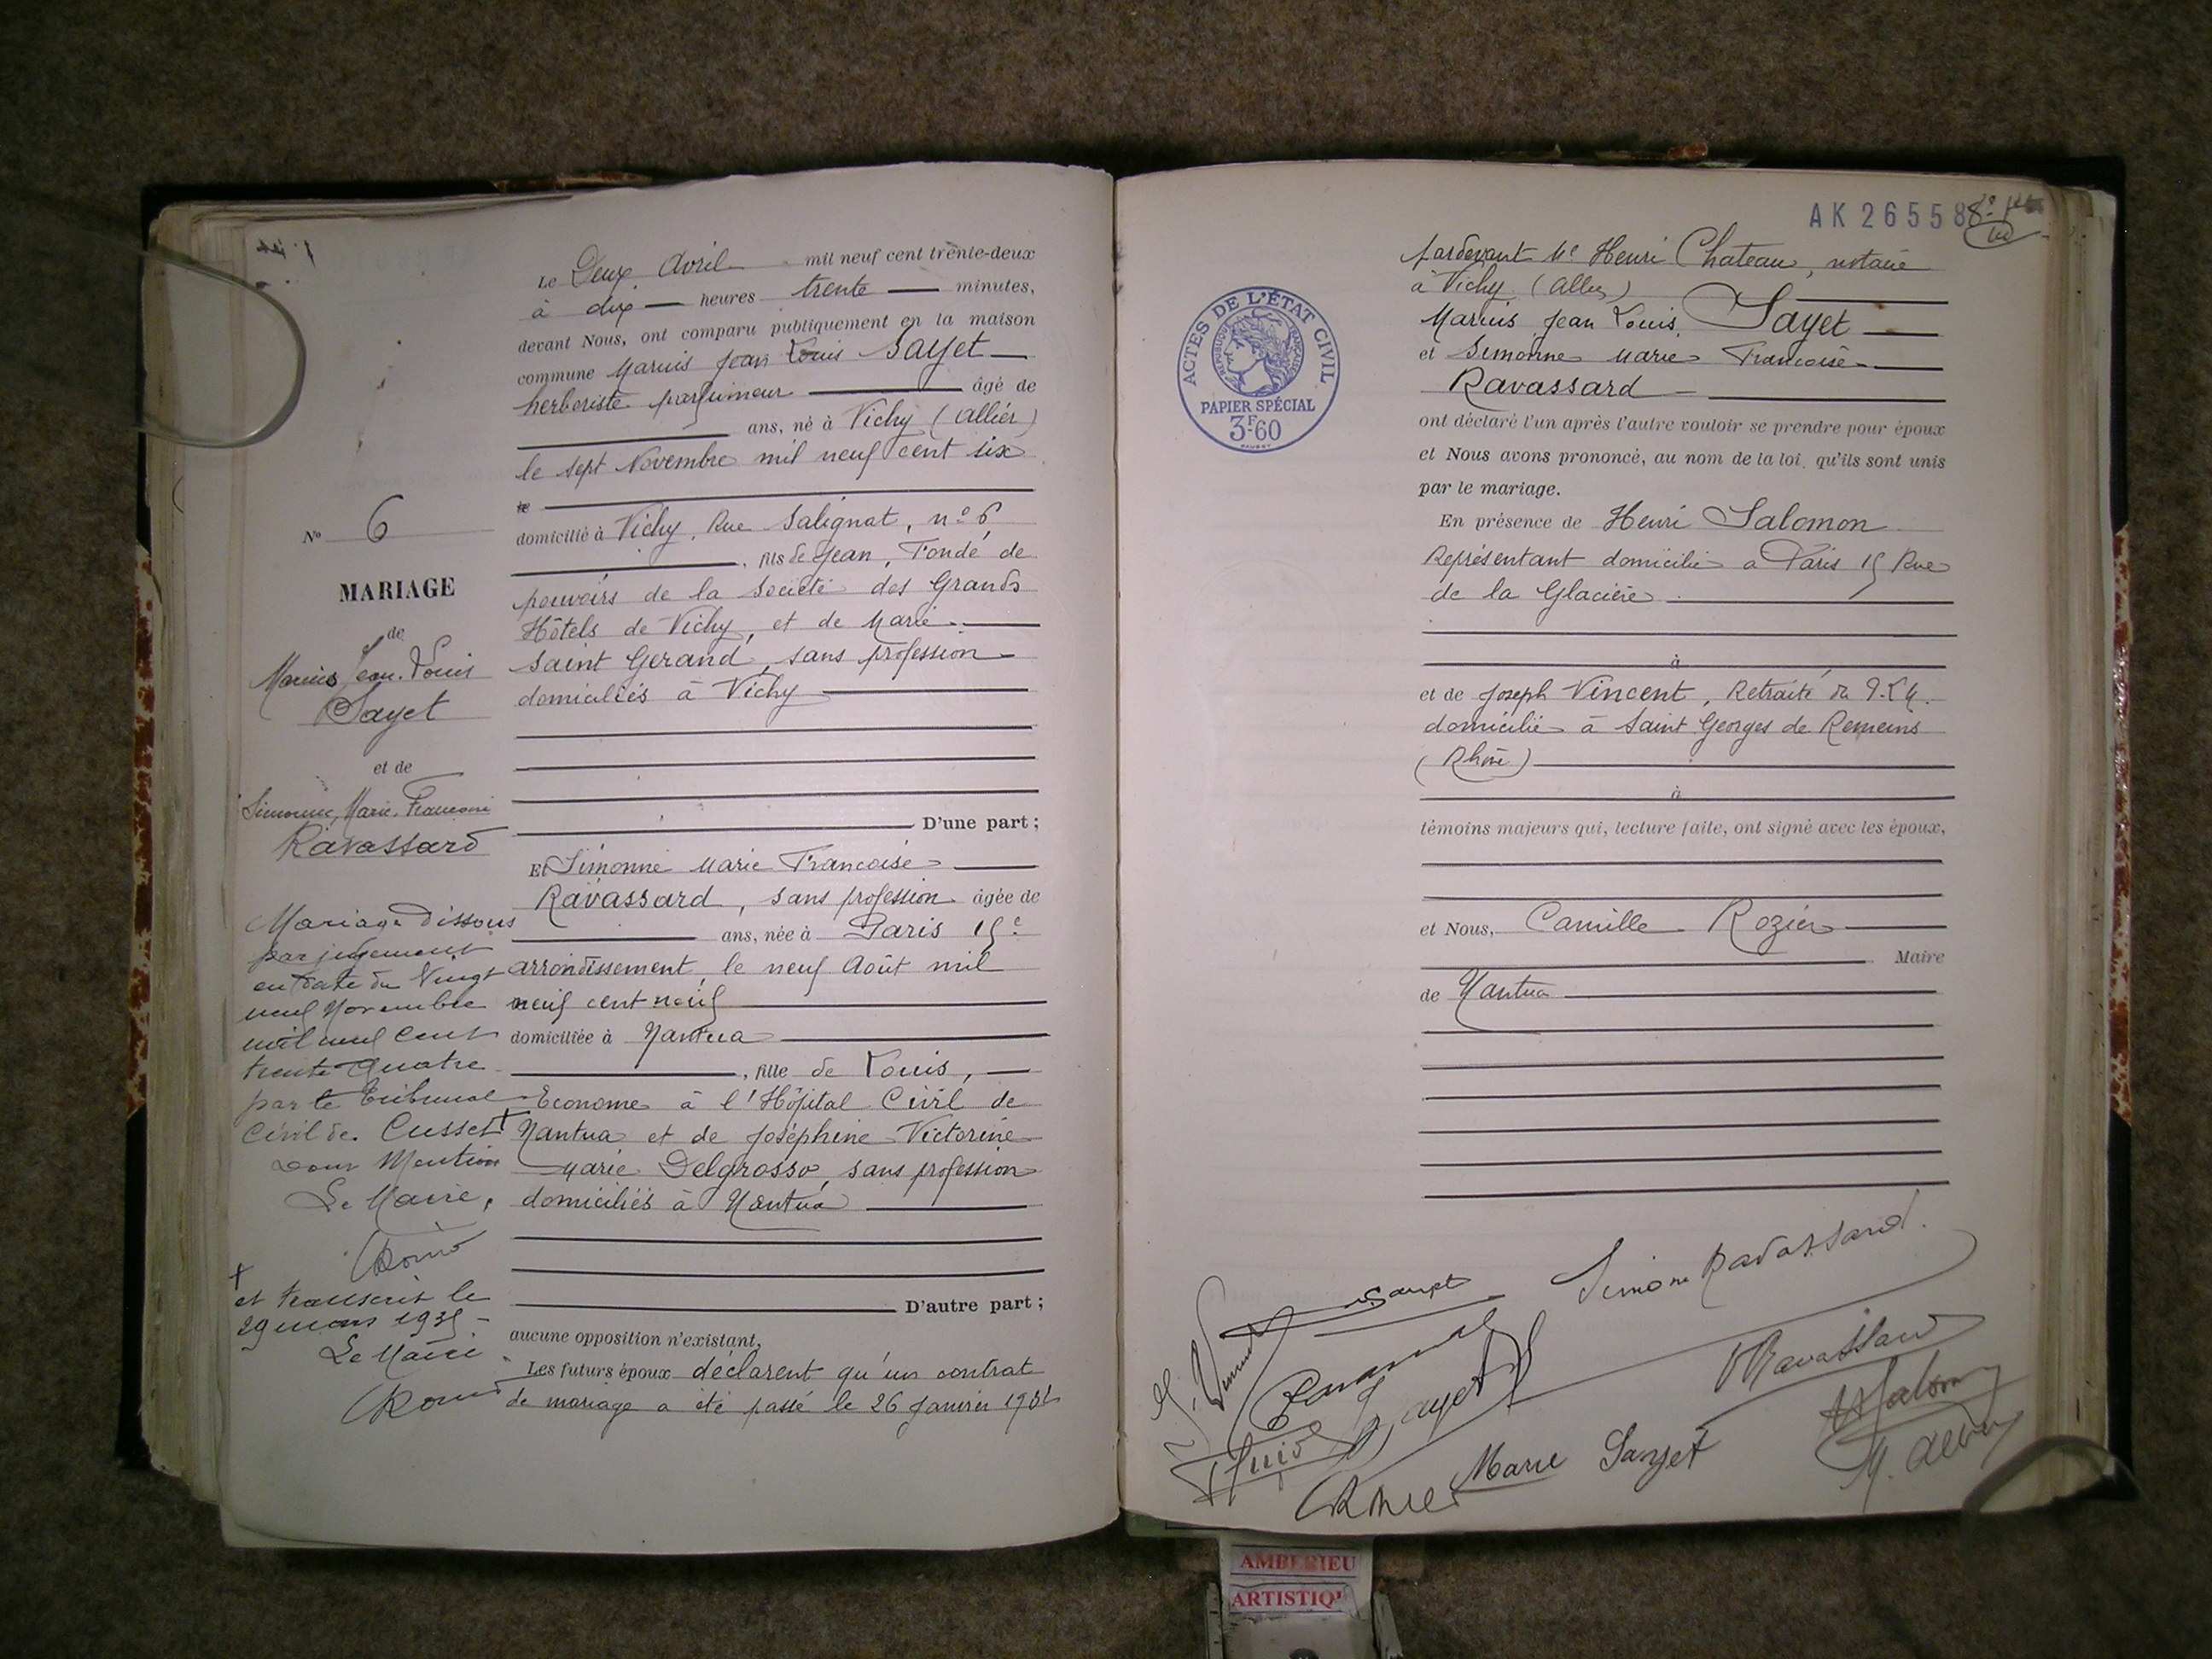 Le Deux Avril mil neuf cent trente-deux
à dix heures trente minutes,
devant Nous, ont comparu publiquement en la maison
commune Marius Jean Louis Sayet
herboriste parfumeur âgé de
ans, né à Vichy (Allier)
le sept Novembre mil neuf cent six
le
domicilié à Vichy, Rue Salignat, n° 6
, fils de Jean, Fondé de
pouvoirs de la Société des Grands
Hôtels de Vichy, et de Marie
Saint Gerand, sans profession
domiciliés à Vichy
D'une part;
Et Simonne Marie Francoise
Ravassard, sans profession âgée de
ans, née à Paris 15e
arrondissement, le neuf Août mil
neuf cent neuf
domiciliée à Nantua
, fille de Louis,
Econome à l'Hôpital Civil de
Nantua et de Joséphine Victorine
Marie Delgrosso, sans profession
domiciliés à Nantua
D'autre part;
aucune opposition n'existant,
Les futurs époux déclarent qu'un contrat
de mariage a été passé le 26 Janvier
No 6
MARIAGE
de
Marius Jean Louis
Sayet
et de
Simonne, Marie, Francoise
Ravassard
Mariage dissous
par jugement
en date du Vingt
neuf Novembre
mil neuf cent
trente quatre
par le Tribunal
Civil de Cusset +
Pour Mention
Le Maire,
+
et transcrit le
29 mars 1935
Le Maire
AK 26558
pardevant Me Henri Chateau, notaire
à Vichy (Allier)
Marius Jean Louis Sayet
et Simonne Marie Francoise
Ravassard
ont déclaré l'un après l'autre vouloir se prendre pour époux
et Nous avons prononcé, au nom de la loi, qu'ils sont unis
par le mariage.
En présence de Henri Salomon
Représentant domicilié à Paris 15 Rue
de la Glacière
à
et de Joseph Vincent, Retraité du P.L.M.
domicilié à Saint Georges de Reneins
(Rhône)
à
témoins majeurs qui, lecture faite, ont signé avec les époux,
et Nous, Camille Rozier
Maire
de Nantua
ACTES DE L'ÉTAT CIVIL
RÉPUBLIQUE FRANÇAISE
PAPIER SPÉCIAL
3F.60
Sayet
Simone Ravassard
Ravassard
Marie Sayet
AMBERIEU
ARTISTIQ